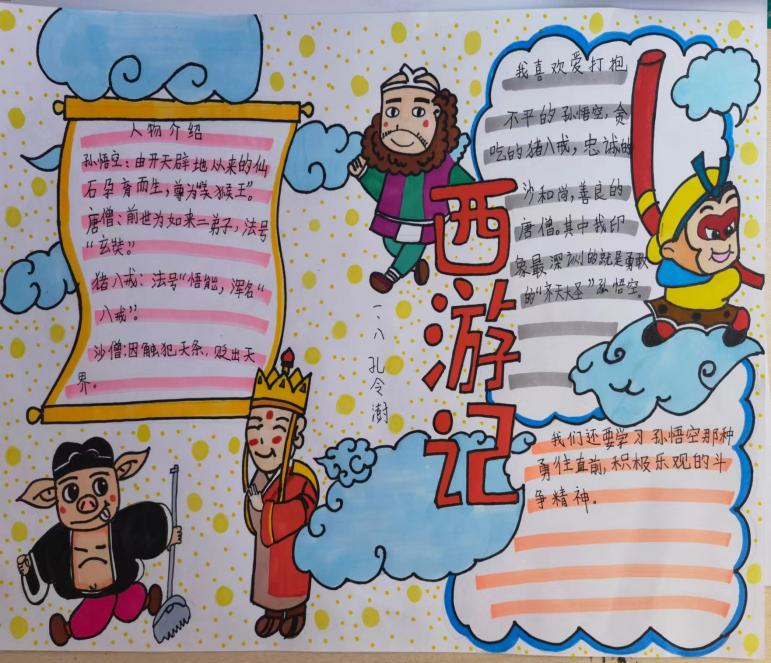 人物介绍
孙悟空：由开天辟地以来的仙
石孕育而生，尊为“美猴王”。
唐僧：前世为如来二弟子，法号
“玄奘”。
猪八戒：法号“悟能，浑名“
八戒”。
沙僧：因触犯天条，贬出天
界。
西游记
一.八 孔令澍
我喜欢爱打抱
不平的孙悟空，贪
吃的猪八戒，忠诚的
沙和尚，善良的
唐僧。其中我印
象最深刻的就是勇敢
的“齐天大圣”孙悟空。
我们还要学习孙悟空那种
勇往直前，积极乐观的斗
争精神。